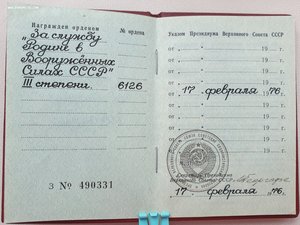 Награжден орденом
№ ордена
„За службу
Родине в
Вооружённых
Силах СССР"
III степени.
6126
З № 490331
Указом Президиума Верховного Совета СССР
19 г.
19 г.
19 г.
19 г.
17 февраля 1976.
19 г.
19 г.
Секретарь Президиума
Верховного Совета СССР
17 февраля 1976.